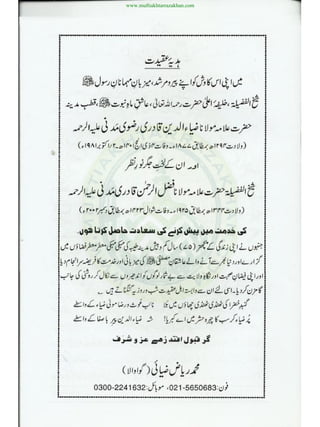 www.muftiakhtarrazakhan.com
ہدیۂ عقیدت
میں اپنی اس کاوش کو اپنے پیر و مرشد، میزبانِ مہمانانِ رسول ﷺ
شیخ الفضیلۃ، خلیفۂ اعلیٰ حضرت رحمۃ اللہ تعالیٰ، عاشقِ ماہِ نبوت ﷺ، قطبِ مدینہ
حضرت علامہ مولانا ضیاء الدین قادری رضوی مدنی علیہ الرحمہ
(ولادت ۱۲۹۴ھ بمطابق ۱۸۷۷ء۔ وفات ۴ ذی الحج ۱۴۰۱ھ۔ ۲ اکتوبر ۱۹۸۱ء)
اور ان کے لختِ جگر نورِ نظر
شیخ الفضیلۃ حضرت علامہ مولانا فضل الرحمٰن قادری مدنی علیہ الرحمہ
(ولادت ۱۳۴۴ھ بمطابق ۱۹۲۵ء وفات شوال ۱۴۲۳ھ بمطابق دسمبر ۲۰۰۲ء)
کی خدمت میں پیش کرنے کی سعادت حاصل کرتا ہوں۔
جنہوں نے اپنی زندگی کے پچھتر (۷۵) سال کم و بیش مدینہ طیبہ کی مہکی مہکی معطر معطر فضاؤں میں
گزارے اور دنیا بھر سے آنے والے عاشقانِ مصطفیٰ ﷺ کی میزبانی اور خدمت کا فریضہ سرانجام دیا
اور اپنی فیضانِ صحبت اور نگاہِ ولایت سے بے شمار لوگوں کو اندھیروں سے نکال کر روشنی کی جانب
گامزن کر دیا۔ اسی لئے ان سے وابستہ اہلِ عقیدت شب و روز یہ گنگناتے ہیں۔
گنبدِ خضرا کی ٹھنڈی ٹھنڈی چھاؤں میں بلا نائبِ غوث و رضا مولیٰ ضیاء کے واسطے
پُر ضیاء کر سب کا چہرہ حشر میں اے کبریا! شہ ضیاء الدین پیر باصفا کے واسطے
گر قبول افتد زہے عز و شرف
محمد ریاض ضیائی (گواوالا)
فون: 021-5650683، موبائل: 0300-2241632